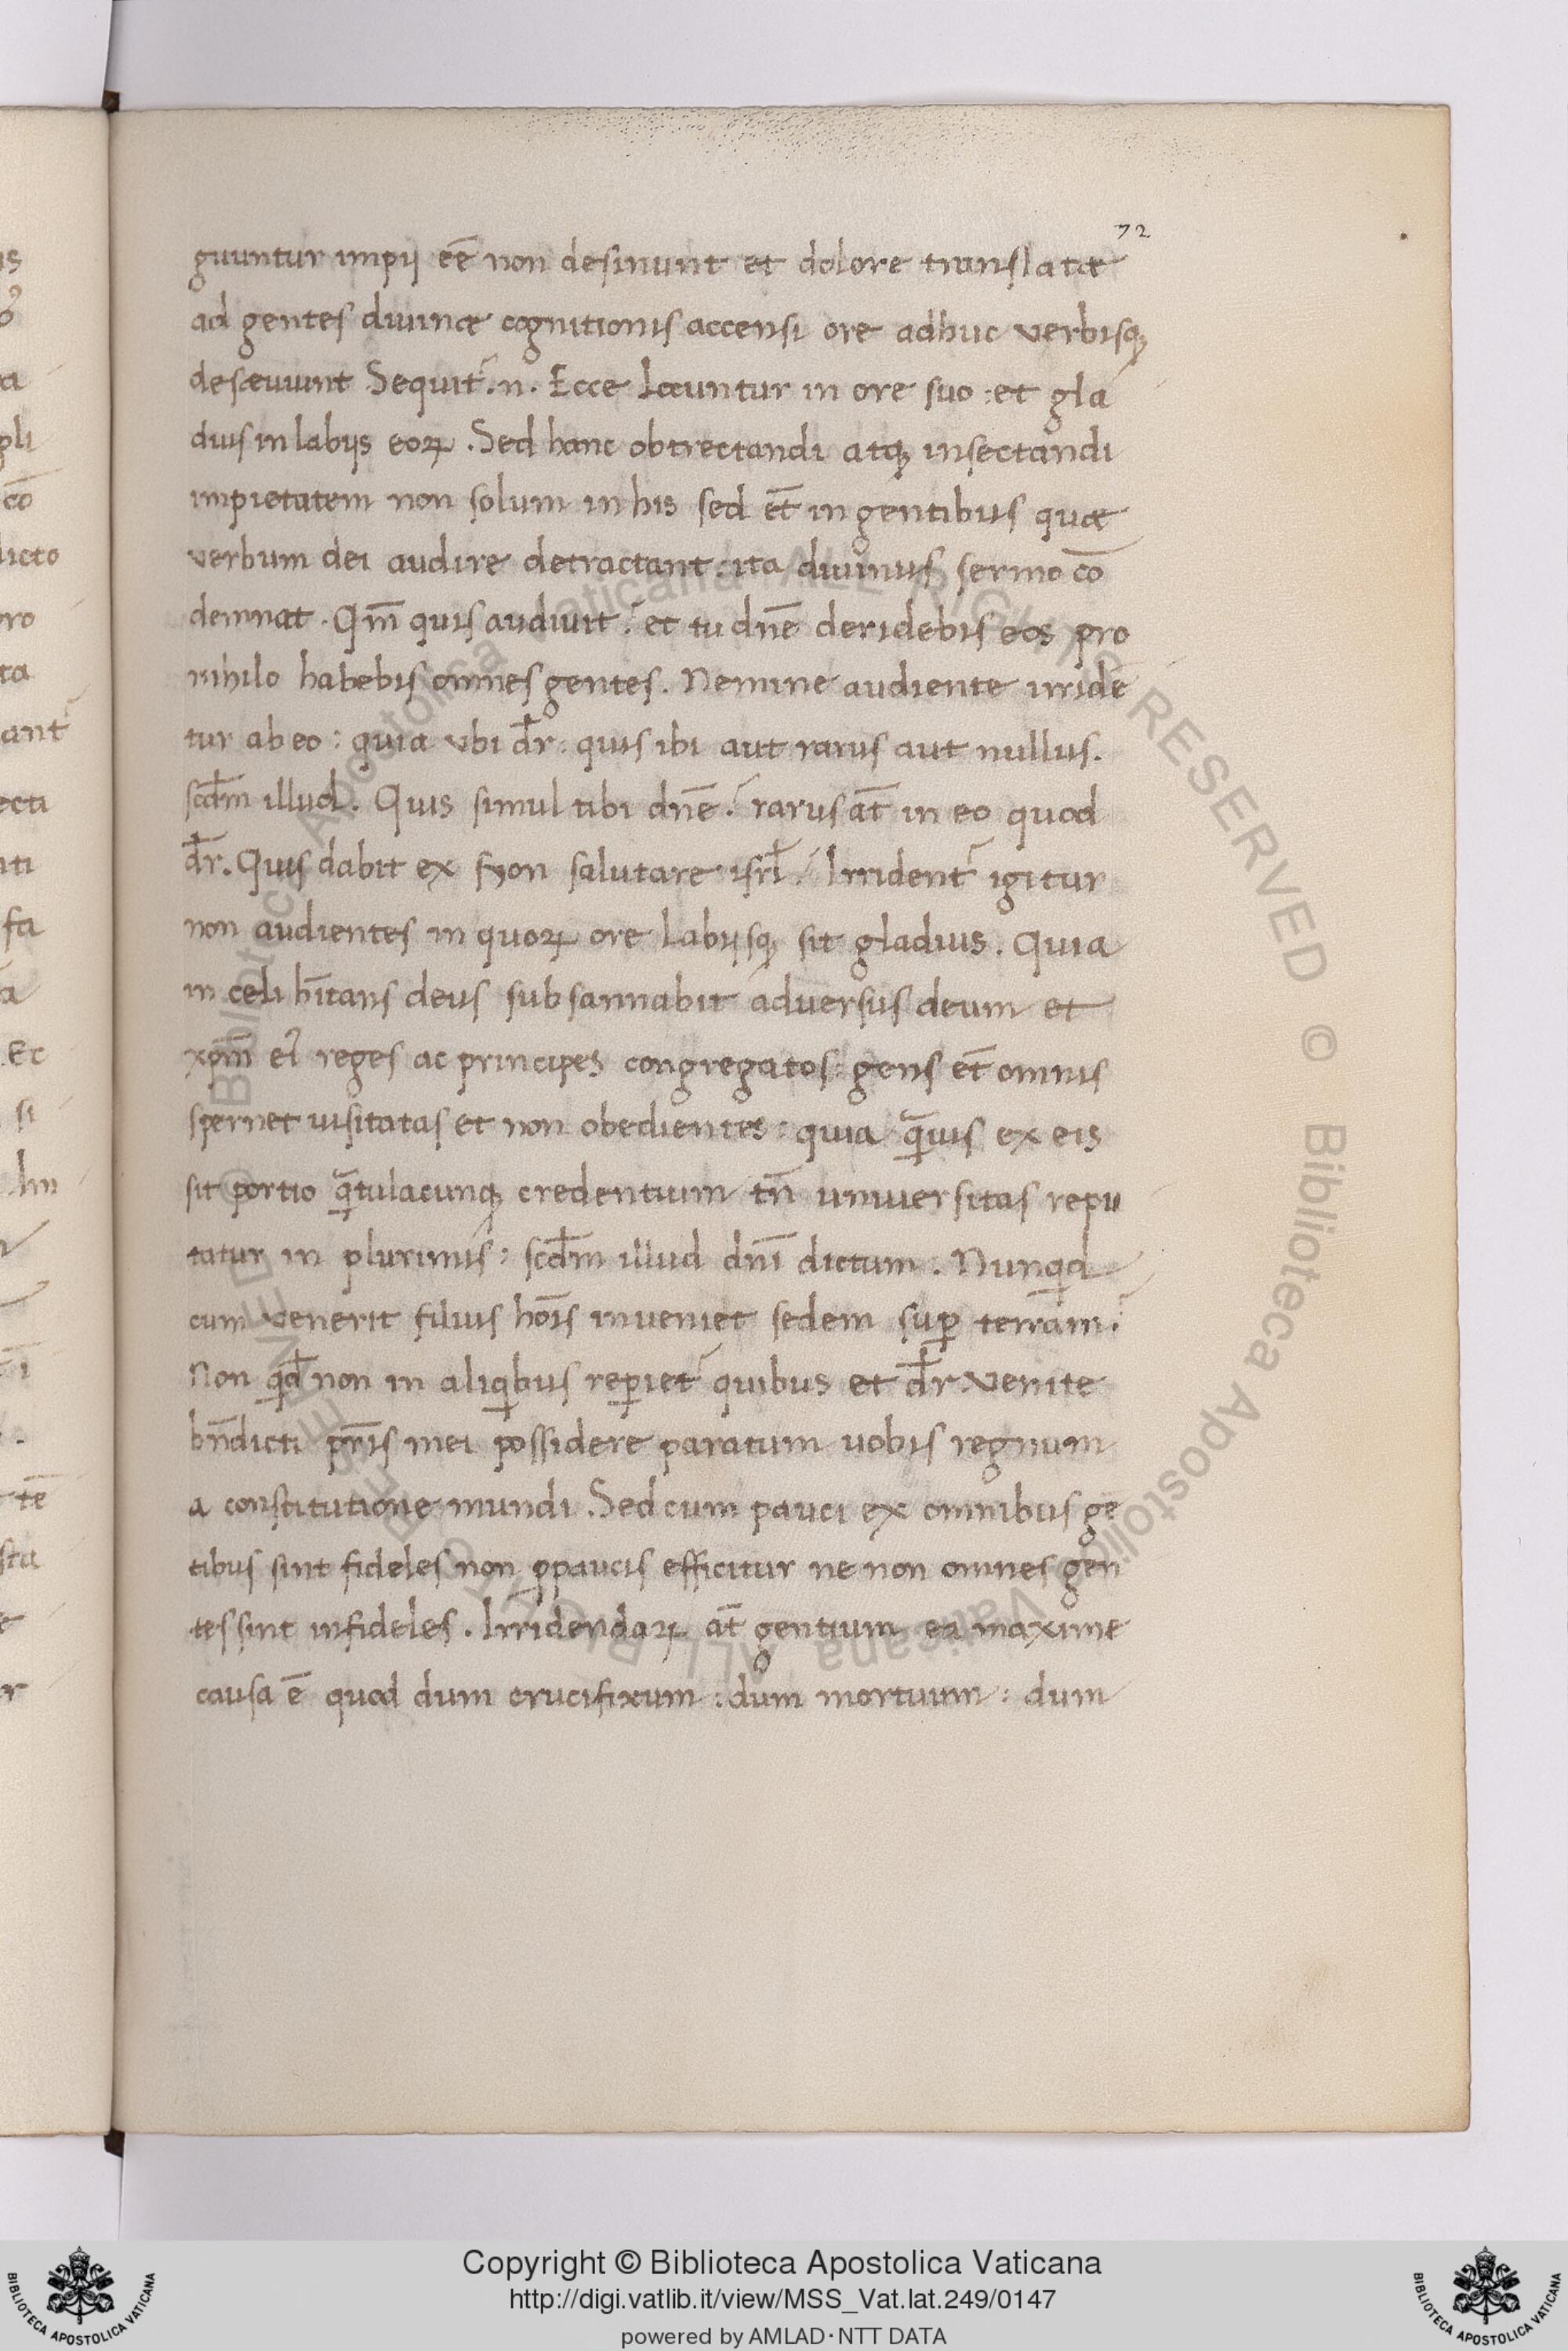 72
guuntur impij eē non desinunt et dolore translatæ
ad gentes diuinæ cognitionis accensi ore adhuc verbisqꝫ
desæuiunt Sequit᷑.n. Ecce Locuntur in ore suo : et gla
dius in labijs eoꝝ. Sed hanc obtrectandi atqꝫ insectandi
impietatem non solum in his sed et̄ in gentibus quæ
verbum dei audire detractant : ita diuinus sermo cō
demnat. Qm̄ quis audiuit? et tu dn̄e deridebis eos pro
nihilo habebis omnes gentes. Nemine audiente irride
tur ab eo : quia vbi dr̄ : quis ibi aut rarus aut nullus.
scd̄m illud. Quis simul tibi dn̄e? rarus at̄ in eo quod
dr̄. Quis dabit ex syon salutare isrl̄? Irrident᷑ igitur
non audientes in quoꝝ ore labijsqꝫ sit gladius. Quia
in celi hītans deus subsannabit adversus deum et
xp̄m ei᷒ reges ac principes congregatos : gens et̄ omnis
spernet uisitatas et non obedientes : quia q̄uis ex eis
sit portio q̄tulacunqꝫ credentium tn̄ universitas repu
tatur in plurimis : scd̄m illud dn̄i dictum. Nunqid
cum venerit filius hōis inveniet sedem suꝑ terram?
Non qd̄ non in aliqibus reꝑiet᷑ quibus et dr̄ venite
bn̄dicti pr̄is mei possidere paratum uobis regnum
a constitutione mundi. Sed cum pauci ex omnibus ge
tibus sint fideles non ꝓpaucis efficitur ne non omnes gen
tes sint infideles. Irridendaꝝ at̄ gentium ea maxime
causa ē quod dum crucifixum : dum mortuum : dum
Copyright © Biblioteca Apostolica Vaticana
http://digi.vatlib.it/view/MSS_Vat.lat.249/0147
powered by AMLAD·NTT DATA